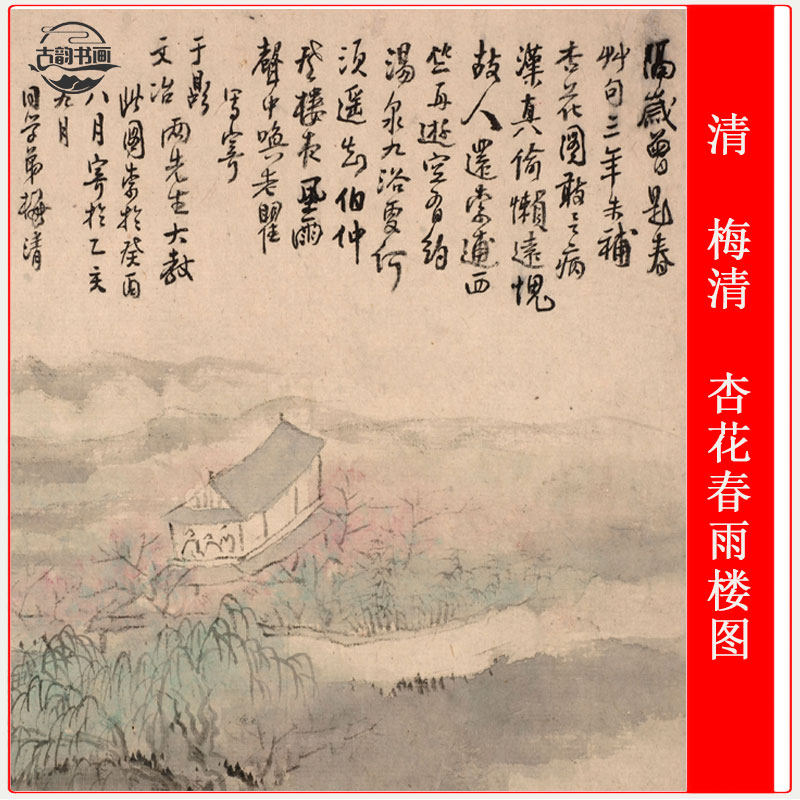 古韵书画
隔歲曾題春
艸句三年未補
杏花圖敢云病
漢真偷懶遠愧
故人還索逋西
竺再遊空有約
湯泉九浴更何
須遥知伯仲
登樓夜風雨
聲中喚老瞿
寫寄
于鼎
文冶 兩先生大教
此圖索於癸酉
八月寄於乙亥
九月
同学弟梅清
清 梅清 杏花春雨楼图